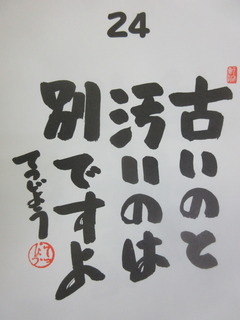 24
古いのと
汚いのは
別ですよ
てつじょう